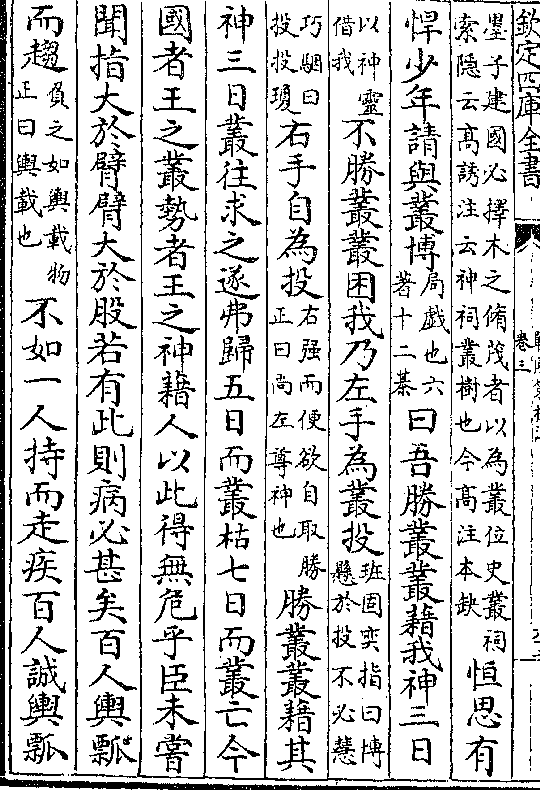 欽定四庫全書
卷三
墨子建國必擇木之脩茂者以為叢位史叢祠
索隱云高誘注云神祠叢樹也今高注本缺
恒思有
悍少年請與叢博
局戲也六
著十二棊
曰吾勝叢叢藉我神三日
以神靈
借我
不勝叢叢困我乃左手為叢投
班固奕指曰博
懸於投不必慧
巧駰曰
投投瓊
右手自為投
右强而便欲自取勝
正曰尚左尊神也
勝叢叢藉其
神三日叢往求之遂弗歸五日而叢枯七日而叢亡今
國者王之叢勢者王之神藉人以此得無危乎臣未嘗
聞指大於臂臂大於股若有此則病必甚矣百人輿瓢
而趨
負之如輿載物
正曰輿載也
不如一人持而走疾百人誠輿瓢